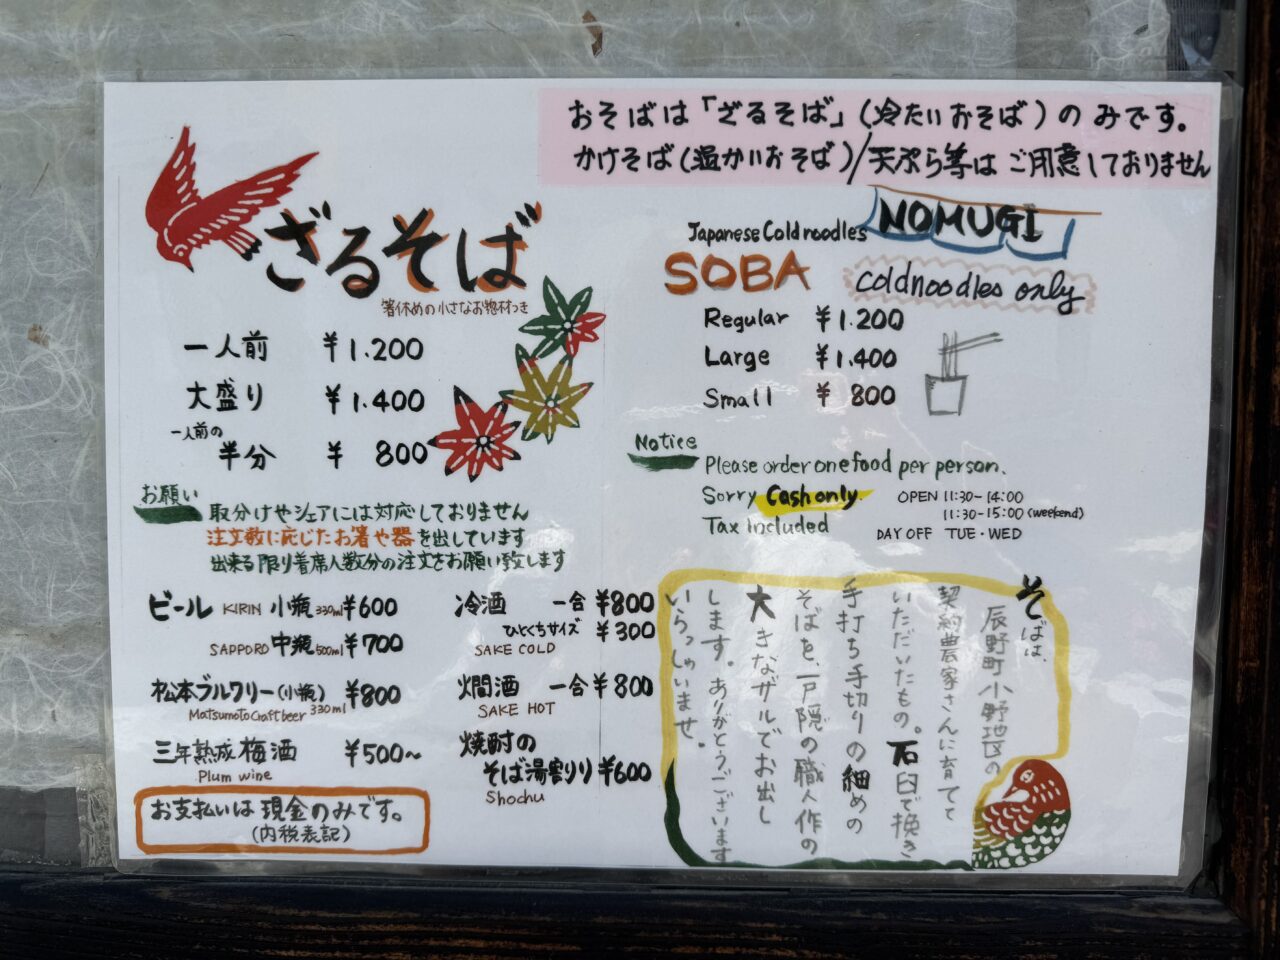 おそばは「ざるそば」(冷たいおそば)のみです。
かけそば(温かいおそば)/天ぷら等はご用意しておりません
ざるそば
箸休めの小さなお惣材つき
一人前 ¥1.200
大盛り ¥1.400
一人前の
半分 ¥ 800
お願い
取分けやシェアには対応しておりません
注文数に応じたお箸や器を出しています
出来る限り着席人数分の注文をお願い致します
ビール KIRIN 小瓶 330ml ¥600
SAPPORO 中瓶 500ml ¥700
松本ブルワリー(小瓶) ¥800
Matsumoto Craft beer 330ml
三年熟成 梅酒 ¥500~
Plum wine
お支払いは現金のみです。
(内税表記)
冷酒 一合 ¥800
ひとくちサイズ ¥300
SAKE COLD
燗酒 一合 ¥800
SAKE HOT
焼酎の
そば湯割り ¥600
Shochu
Japanese Cold noodles NOMUGI
SOBA coldnoodles only
Regular ¥1.200
Large ¥1.400
Small ¥ 800
Notice
Please order one food per person.
Sorry Cash only
Tax Included
OPEN 11:30-14:00
11:30-15:00 (weekend)
DAY OFF TUE・WED
そばは、
辰野町小野地区の
契約農家さんに育てて
いただいたもの。石臼で挽き
手打ち手切りの細めの
そばを、戸隠の職人作の
大きなザルでお出し
します。ありがとうございます
いらっしゃいませ。